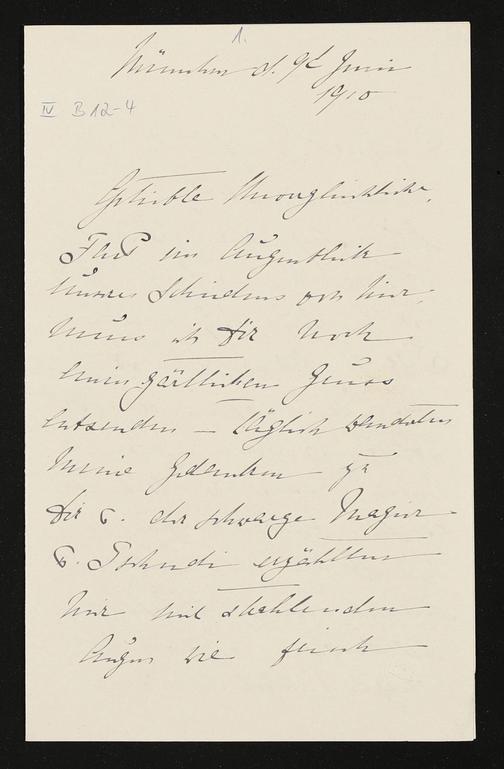 1.
München d. 9t Juni
1910
IV B 12-4
Geliebte Unvergleichliche,
Fast im Augenblick
unseres Scheidens von hier
muss ich Dir noch
einen zärtlichen Gruss
entsenden – täglich wandeln
meine Gedanken zu
Dir u. der schwarze Magier
v. Tschudi erzählten
mir mit strahlenden
Augen wie frisch